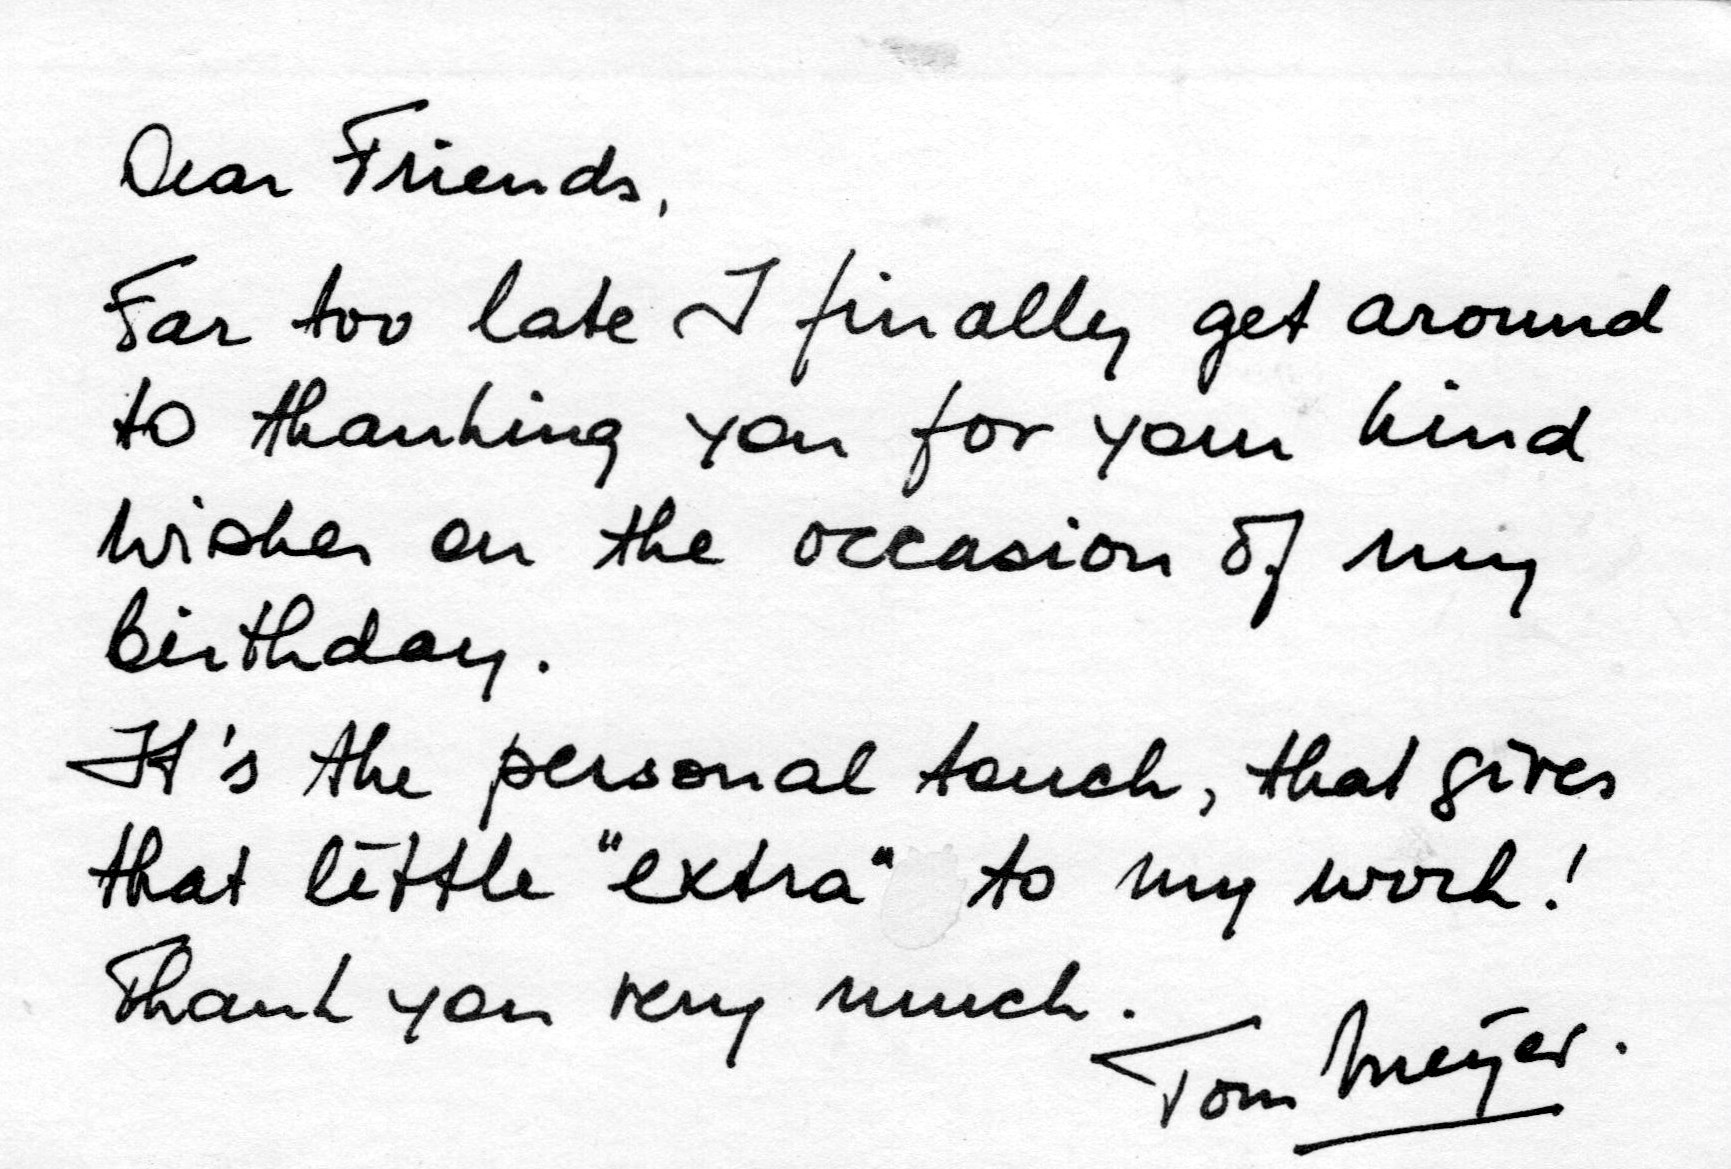 Dear Friends,
Far too late I finally get around
to thanking you for your kind
wishes on the occasion of my
birthday.
It's the personal touch, that gives
that little "extra" to my work!
Thank you very much.
Tom Meyer.